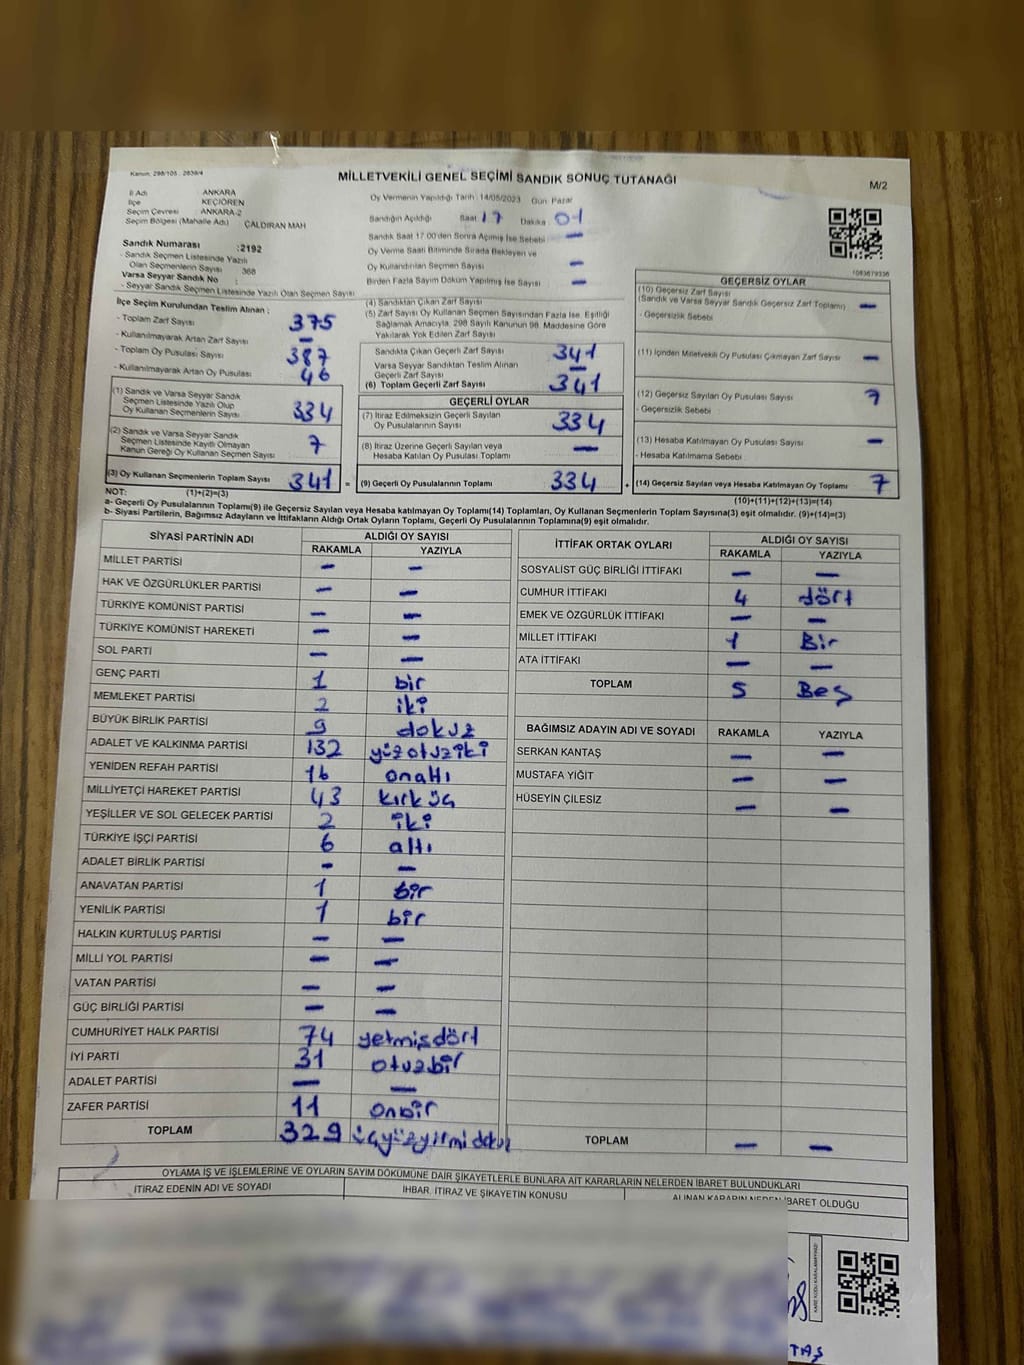 Kanun: 298/105 . 2839/4
MİLLETVEKİLİ GENEL SEÇİMİ SANDIK SONUÇ TUTANAĞI
M/2
İl Adı ANKARA
İlçe KEÇİÖREN
Seçim Çevresi ANKARA-2
Seçim Bölgesi (Mahalle Adı) ÇALDIRAN MAH
Sandık Numarası :2192
- Sandık Seçmen Listesinde Yazılı
Olan Seçmenlerin Sayısı : 368
Varsa Seyyar Sandık No :
- Seyyar Sandık Seçmen Listesinde Yazılı Olan Seçmen Sayısı
Oy Vermenin Yapıldığı Tarih : 14/05/2023 Gün: Pazar
Sandığın Açıldığı Saat 17 Dakika 01
Sandık Saat 17.00'den Sonra Açılmış İse Sebebi —
Oy Verme Saati Bitiminde Sırada Bekleyen ve
Oy Kullandırılan Seçmen Sayısı —
Birden Fazla Sayım Döküm Yapılmış İse Sayısı —
1083679336
İlçe Seçim Kurulundan Teslim Alınan :
- Toplam Zarf Sayısı 375
- Kullanılmayarak Artan Zarf Sayısı —
- Toplam Oy Pusulası Sayısı 387
- Kullanılmayarak Artan Oy Pusulası 46
(1) Sandık ve Varsa Seyyar Sandık
Seçmen Listesinde Yazılı Olup
Oy Kullanan Seçmenlerin Sayısı 334
(2) Sandık ve Varsa Seyyar Sandık
Seçmen Listesinde Kayıtlı Olmayan
Kanun Gereği Oy Kullanan Seçmen Sayısı 7
(3) Oy Kullanan Seçmenlerin Toplam Sayısı 341 =
(4) Sandıktan Çıkan Zarf Sayısı
(5) Zarf Sayısı Oy Kullanan Seçmen Sayısından Fazla İse, Eşitliği
Sağlamak Amacıyla, 298 Sayılı Kanunun 98. Maddesine Göre
Yakılarak Yok Edilen Zarf Sayısı
Sandıkta Çıkan Geçerli Zarf Sayısı 341
Varsa Seyyar Sandıktan Teslim Alınan
Geçerli Zarf Sayısı —
(6) Toplam Geçerli Zarf Sayısı 341
GEÇERLİ OYLAR
(7) İtiraz Edilmeksizin Geçerli Sayılan
Oy Pusulalarının Sayısı 334
(8) İtiraz Üzerine Geçerli Sayılan veya
Hesaba Katılan Oy Pusulası Toplamı —
(9) Geçerli Oy Pusulalarının Toplamı 334 +
GEÇERSİZ OYLAR
(10) Geçersiz Zarf Sayısı
(Sandık ve Varsa Seyyar Sandık Geçersiz Zarf Toplamı) —
- Geçersizlik Sebebi :
(11) İçinden Milletvekili Oy Pusulası Çıkmayan Zarf Sayısı —
(12) Geçersiz Sayılan Oy Pusulası Sayısı 7
- Geçersizlik Sebebi :
(13) Hesaba Katılmayan Oy Pusulası Sayısı —
- Hesaba Katılmama Sebebi :
(14) Geçersiz Sayılan veya Hesaba Katılmayan Oy Toplamı 7
NOT: (1)+(2)=(3)
(10)+(11)+(12)+(13)=(14)
a- Geçerli Oy Pusulalarının Toplamı(9) ile Geçersiz Sayılan veya Hesaba katılmayan Oy Toplamı(14) Toplamları, Oy Kullanan Seçmenlerin Toplam Sayısına(3) eşit olmalıdır. (9)+(14)=(3)
b- Siyasi Partilerin, Bağımsız Adayların ve İttifakların Aldığı Ortak Oyların Toplamı, Geçerli Oy Pusulalarının Toplamına(9) eşit olmalıdır.
SİYASİ PARTİNİN ADI ALDIĞI OY SAYISI
RAKAMLA YAZIYLA
MİLLET PARTİSİ — —
HAK VE ÖZGÜRLÜKLER PARTİSİ — —
TÜRKİYE KOMÜNİST PARTİSİ — —
TÜRKİYE KOMÜNİST HAREKETİ — —
SOL PARTİ — —
GENÇ PARTİ 1 bir
MEMLEKET PARTİSİ 2 iki
BÜYÜK BİRLİK PARTİSİ 9 dokuz
ADALET VE KALKINMA PARTİSİ 132 yüzotuziki
YENİDEN REFAH PARTİSİ 16 onaltı
MİLLİYETÇİ HAREKET PARTİSİ 43 kırküç
YEŞİLLER VE SOL GELECEK PARTİSİ 2 iki
TÜRKİYE İŞÇİ PARTİSİ 6 altı
ADALET BİRLİK PARTİSİ — —
ANAVATAN PARTİSİ 1 bir
YENİLİK PARTİSİ 1 bir
HALKIN KURTULUŞ PARTİSİ — —
MİLLİ YOL PARTİSİ — —
VATAN PARTİSİ — —
GÜÇ BİRLİĞİ PARTİSİ — —
CUMHURİYET HALK PARTİSİ 74 yetmişdört
İYİ PARTİ 31 otuzbir
ADALET PARTİSİ — —
ZAFER PARTİSİ 11 onbir
TOPLAM 329 üçyüzyirmidokuz
İTTİFAK ORTAK OYLARI ALDIĞI OY SAYISI
RAKAMLA YAZIYLA
SOSYALİST GÜÇ BİRLİĞİ İTTİFAKI — —
CUMHUR İTTİFAKI 4 dört
EMEK VE ÖZGÜRLÜK İTTİFAKI — —
MİLLET İTTİFAKI 1 Bir
ATA İTTİFAKI — —
TOPLAM 5 Beş
BAĞIMSIZ ADAYIN ADI VE SOYADI RAKAMLA YAZIYLA
SERKAN KANTAŞ — —
MUSTAFA YİĞİT — —
HÜSEYİN ÇİLESİZ — —
TOPLAM — —
OYLAMA İŞ VE İŞLEMLERİNE VE OYLARIN SAYIM DÖKÜMÜNE DAİR ŞİKAYETLERLE BUNLARA AİT KARARLARIN NELERDEN İBARET BULUNDUKLARI
İTİRAZ EDENİN ADI VE SOYADI İHBAR, İTİRAZ VE ŞİKAYETİN KONUSU ALINAN KARARIN NEDEN İBARET OLDUĞU
KARE KODU KARALAMAYINIZ!
TAŞ